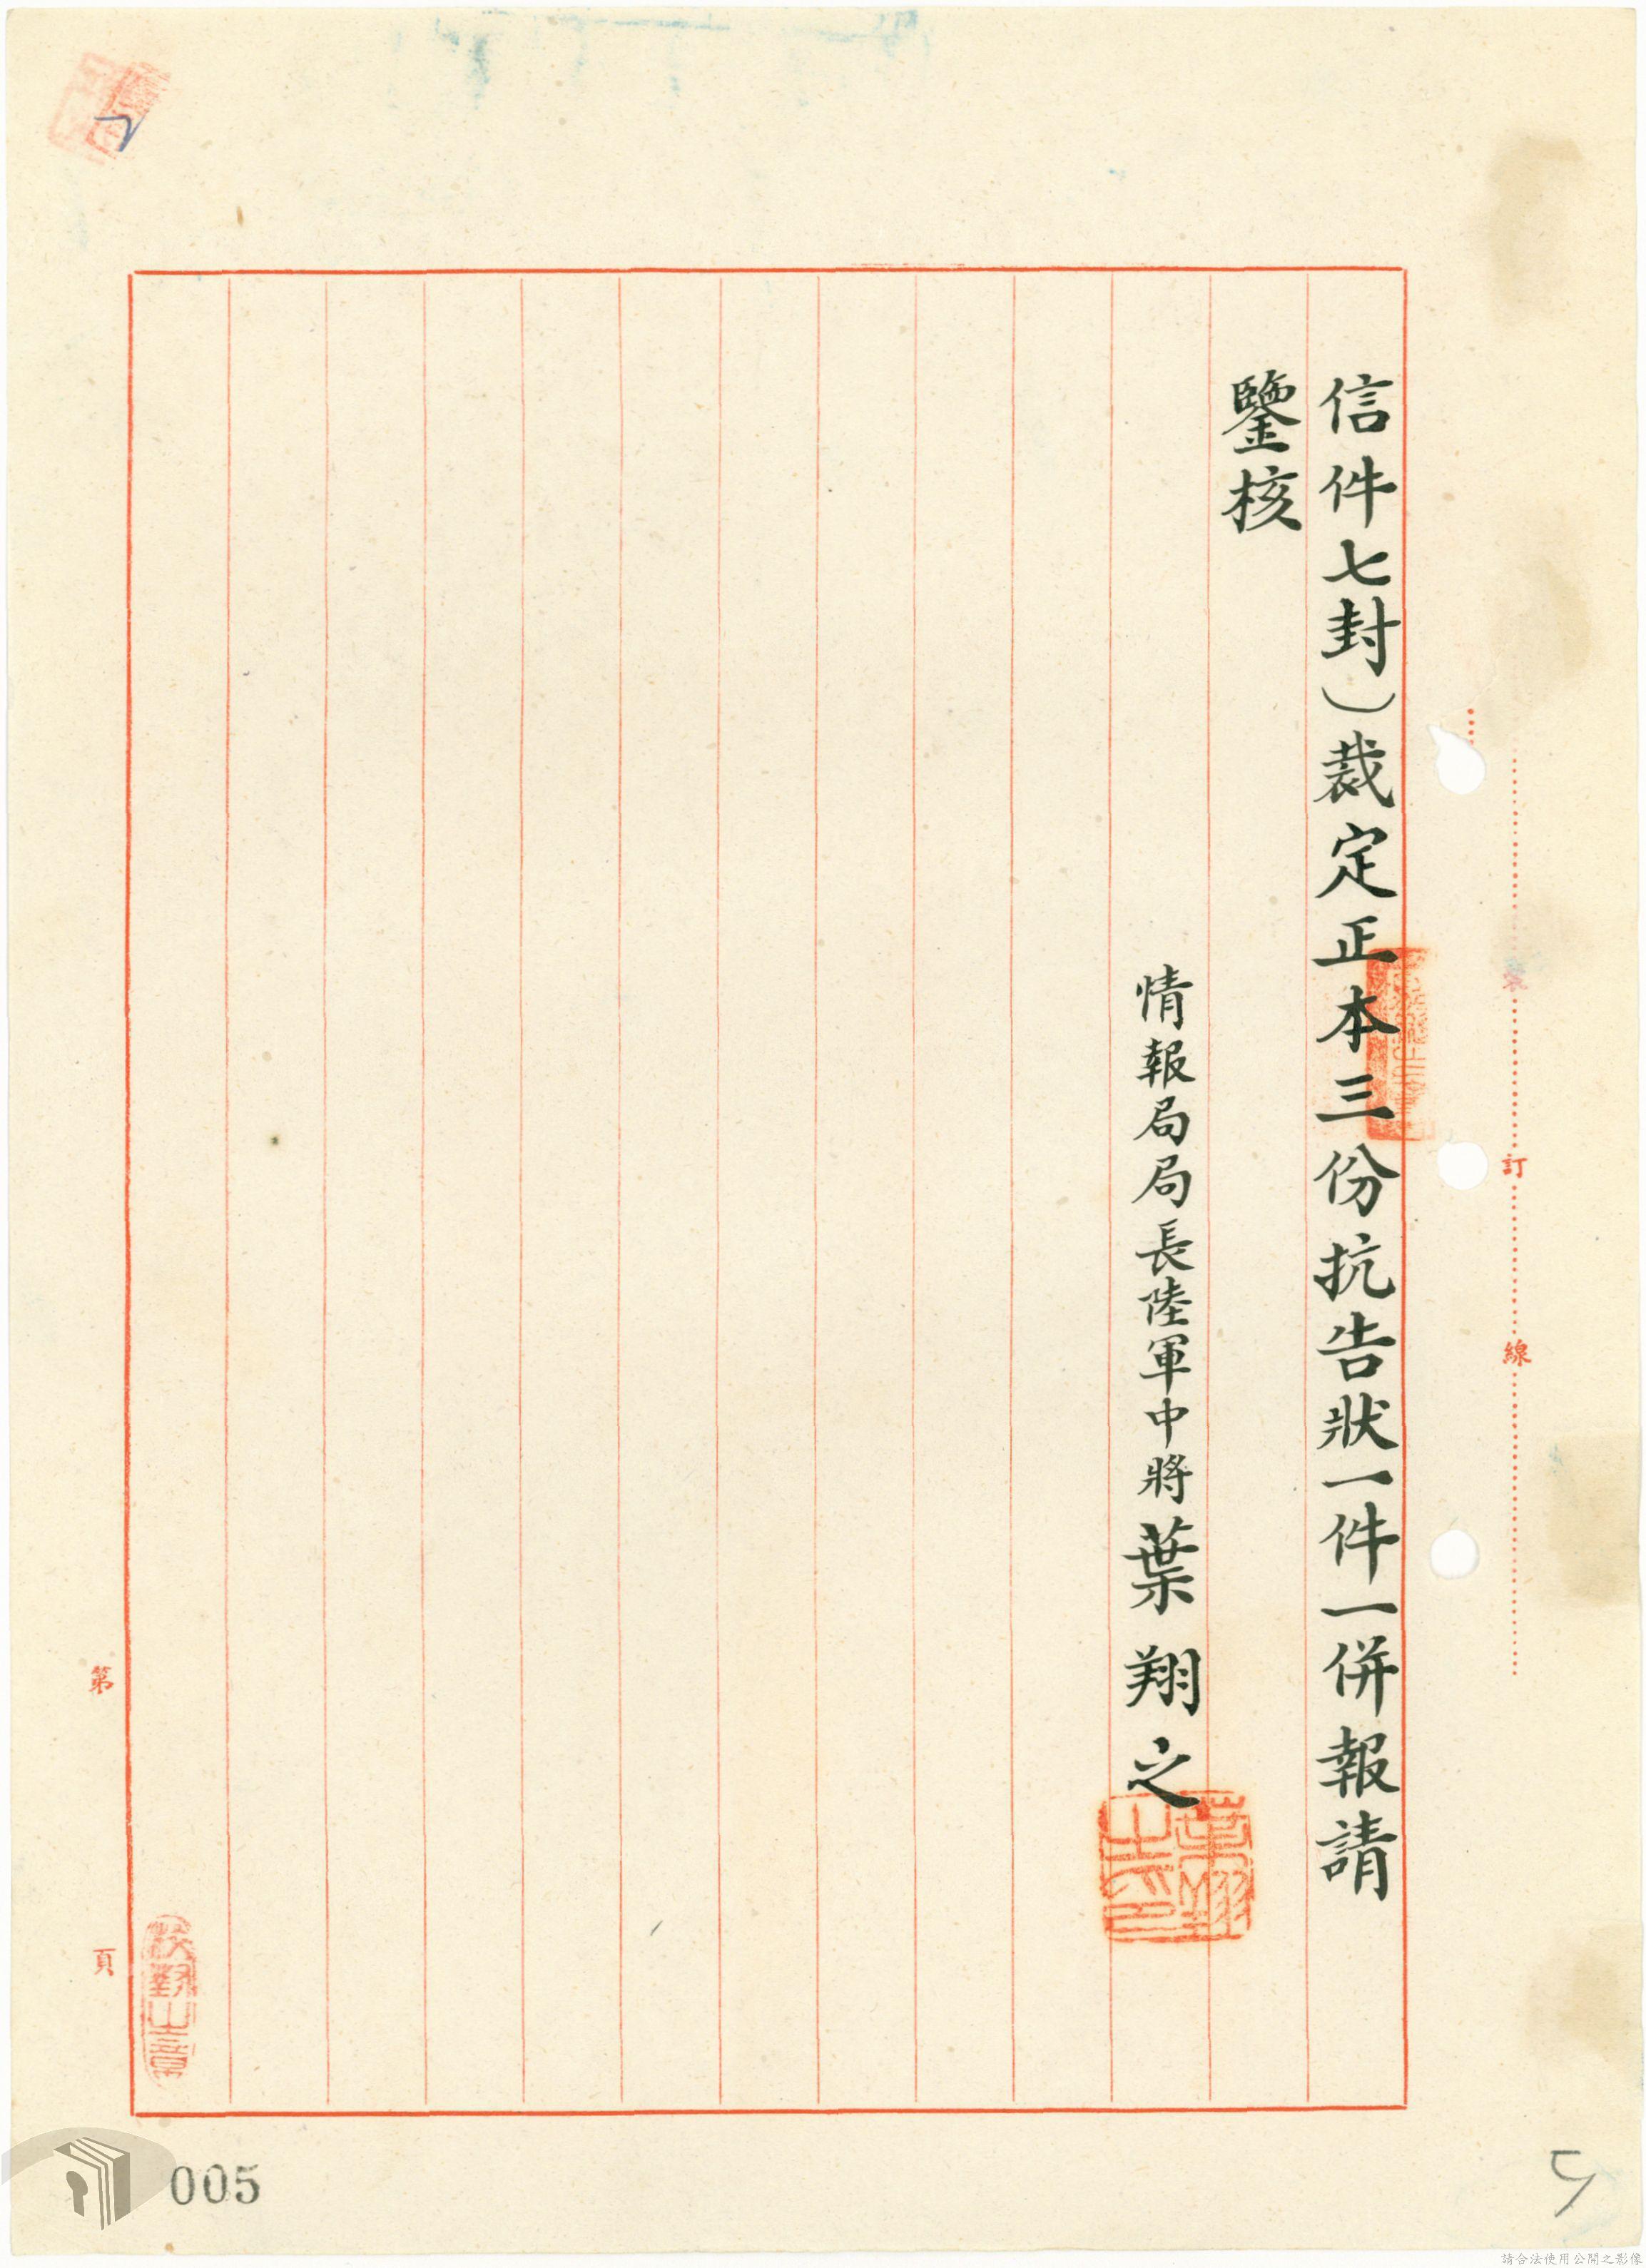 信件七封）裁定正本三份抗告狀一件一併報請
鑒核
情報局局長陸軍中將葉翔之
葉翔之印
訂
線
第
頁
005
請合法使用公開之影像